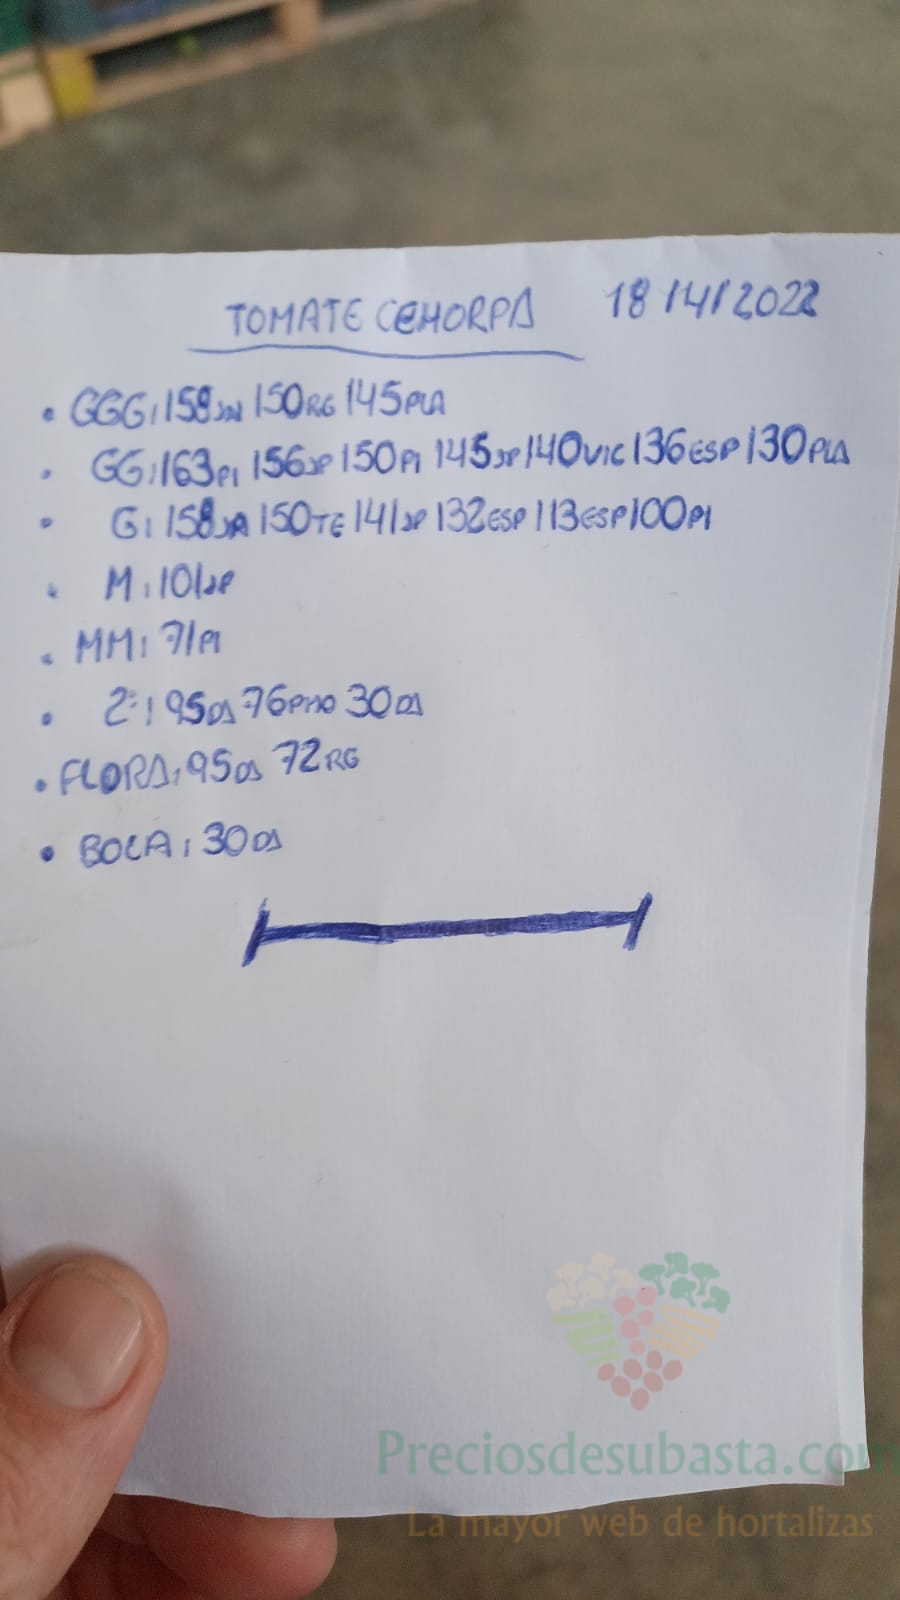 TOMATE CEHORPA 18/4/2022
• GGG: 158JN 150RG 145PLA
• GG: 163PI 156JP 150PI 145JP 140VIC 136ESP 130PLA
• G: 158JA 150TE 141JP 132ESP 113ESP 100PI
• M: 101JP
• MM: 71PI
• 2ª: 95DS 76PMO 30DS
• FLORA: 95DS 72RG
• BOLA: 30DS
Preciosdesubasta.com
La mayor web de hortalizas